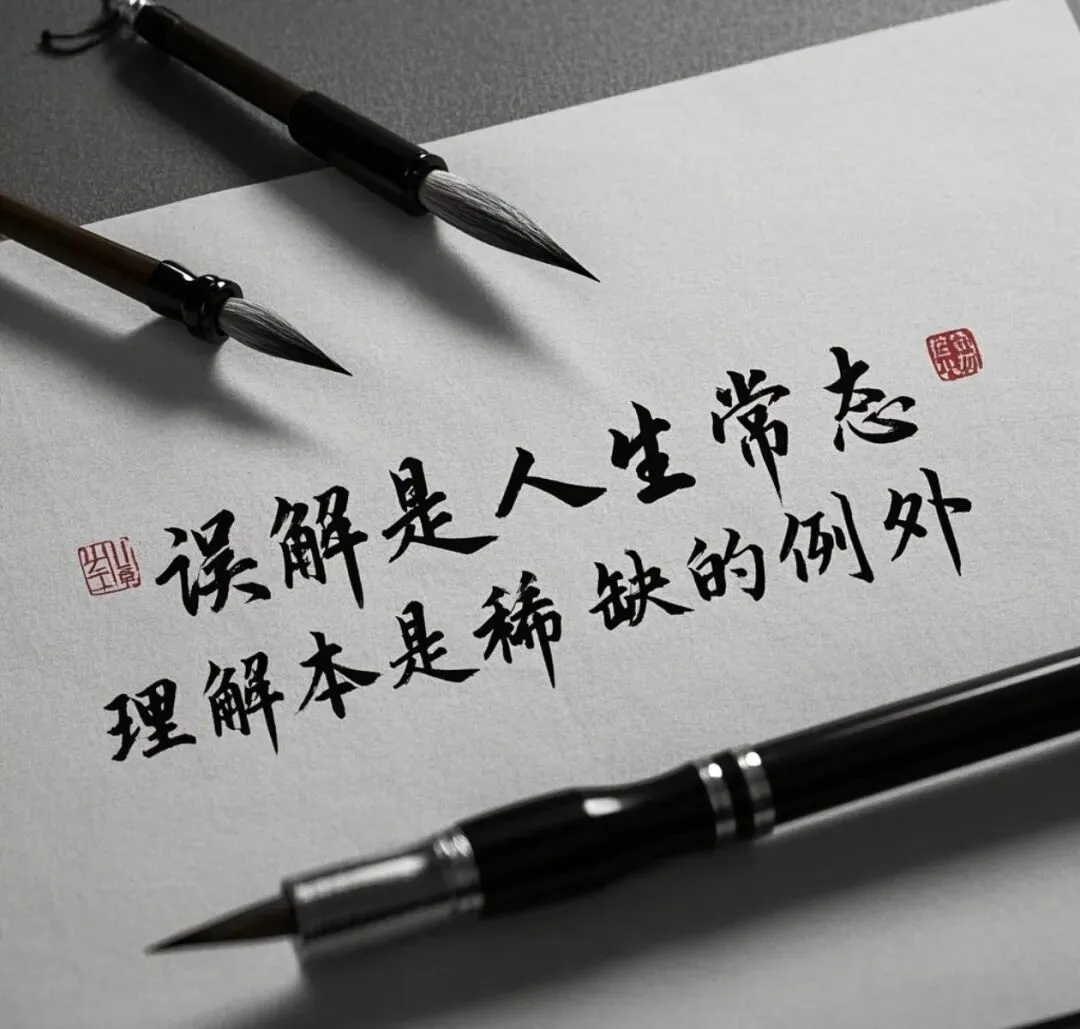 误解是人生常态
理解本是稀缺的例外